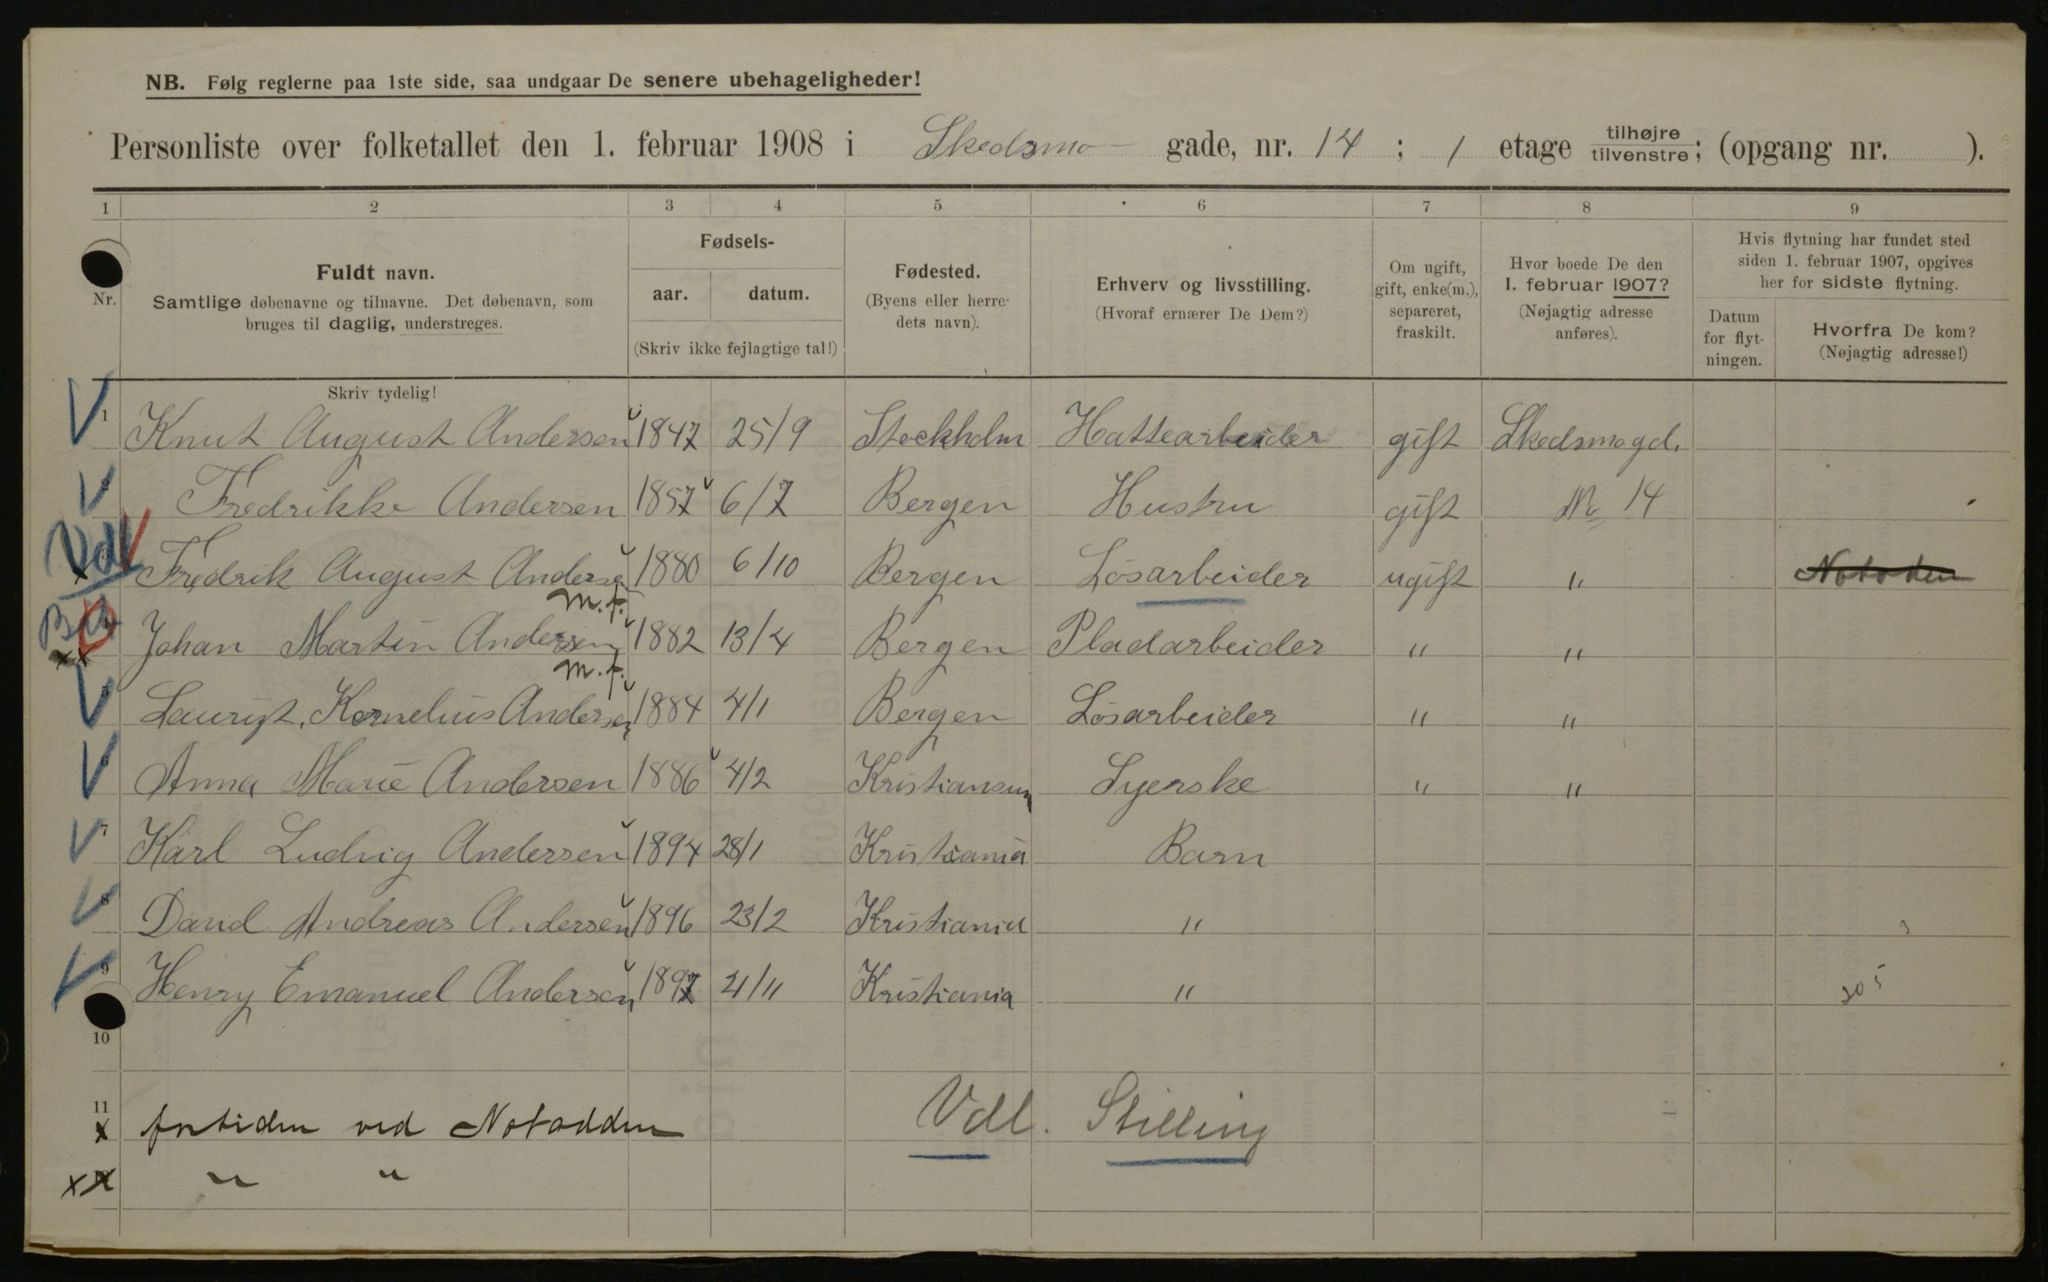 NB. Følg reglerne paa 1ste side, saa undgaar De senere ubehageligheder!
Personliste over folketallet den 1. februar 1908 i Skedsmo- gade, nr. 14 ; 1 etage tilhøjre/tilvenstre; (opgang nr. ).
1 2 3 4 5 6 7 8 9
Nr.
Fuldt navn.
Samtlige døbenavne og tilnavne. Det døbenavn, som
bruges til daglig, understreges.
Skriv tydelig!
Fødsels-
aar. datum.
(Skriv ikke fejlagtige tal!)
Fødested.
(Byens eller herre-
dets navn).
Erhverv og livsstilling.
(Hvoraf ernærer De Dem?)
Om ugift,
gift, enke(m.),
separeret,
fraskilt.
Hvor boede De den
1. februar 1907?
(Nøjagtig adresse
anføres).
Hvis flytning har fundet sted
siden 1. februar 1907, opgives
her for sidste flytning.
Datum
for flyt-
ningen.
Hvorfra De kom?
(Nøjagtig adresse!)
1 Knut August Andersen 1847 25/9 Stockholm Hattearbeider gift Skedsmogd.
2 Fredrikke Andersen 1857 6/7 Bergen Hustru gift No 14
Vdl x Fredrik August Andersen 1880 6/10 Bergen Løsarbeider ugift " Notodden
m.f.
xx Johan Martin Andersen 1882 13/4 Bergen Pladarbeider " "
m.f.
Kornelius Andersen 1884 4/1 Bergen Løsarbeider " "
Anna Marie Andersen 1886 4/2 Kristiansun Syerske " "
7 Karl Ludvig Andersen 1894 28/1 Kristiania Barn
8 David Andreas Andersen 1896 23/2 Kristiania "
9 Henry Emanuel Andersen 1897 21/11 Kristiania " 205
10
11
x fortiden ved Notodden Vdl. Stilling
xx " "